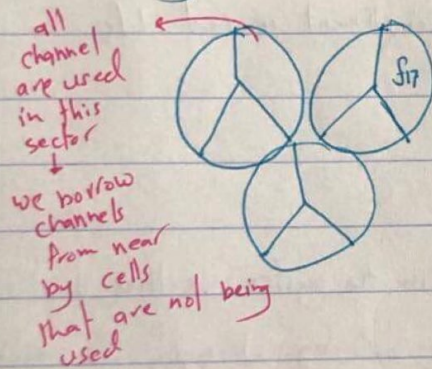 all
channel
are used
in this
sector
we borrow
channels
from near
by cells
that are not being
used
f17